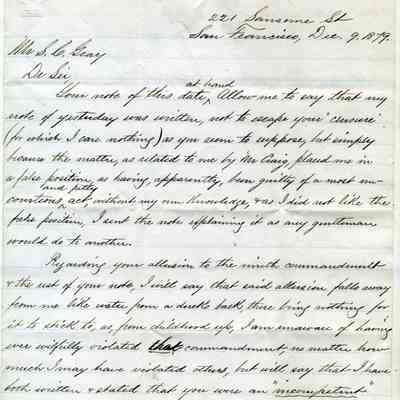 221 Sansome St
San Francisco, Dec. 9. 1879.
Mr S. C. Gray
Dr Sir,
at hand
Your note of this date, Allow me to say that my
note of yesterday was written, not to escape your 'censure'
(for which I care nothing) as you seem to suppose, but simply
because the matter, as related to me by Mr Craig, placed me in
a false position, as having, apparently, been guilty of a most un-
and petty
courteous, act, without my own knowledge, & as I did not like the
false position, I sent the note explaining it as any gentleman
would do to another.
Regarding your allusion to the ninth commandment
& the rest of your note, I will say that said allusion falls away
from me like water from a duck's back, there being nothing for
it to stick to, as, from childhood up, I am unaware of having
ever wilfully violated that commandment, no matter how
much I may have violated others, but will say that I have
both written & stated that you were an "incompetent"